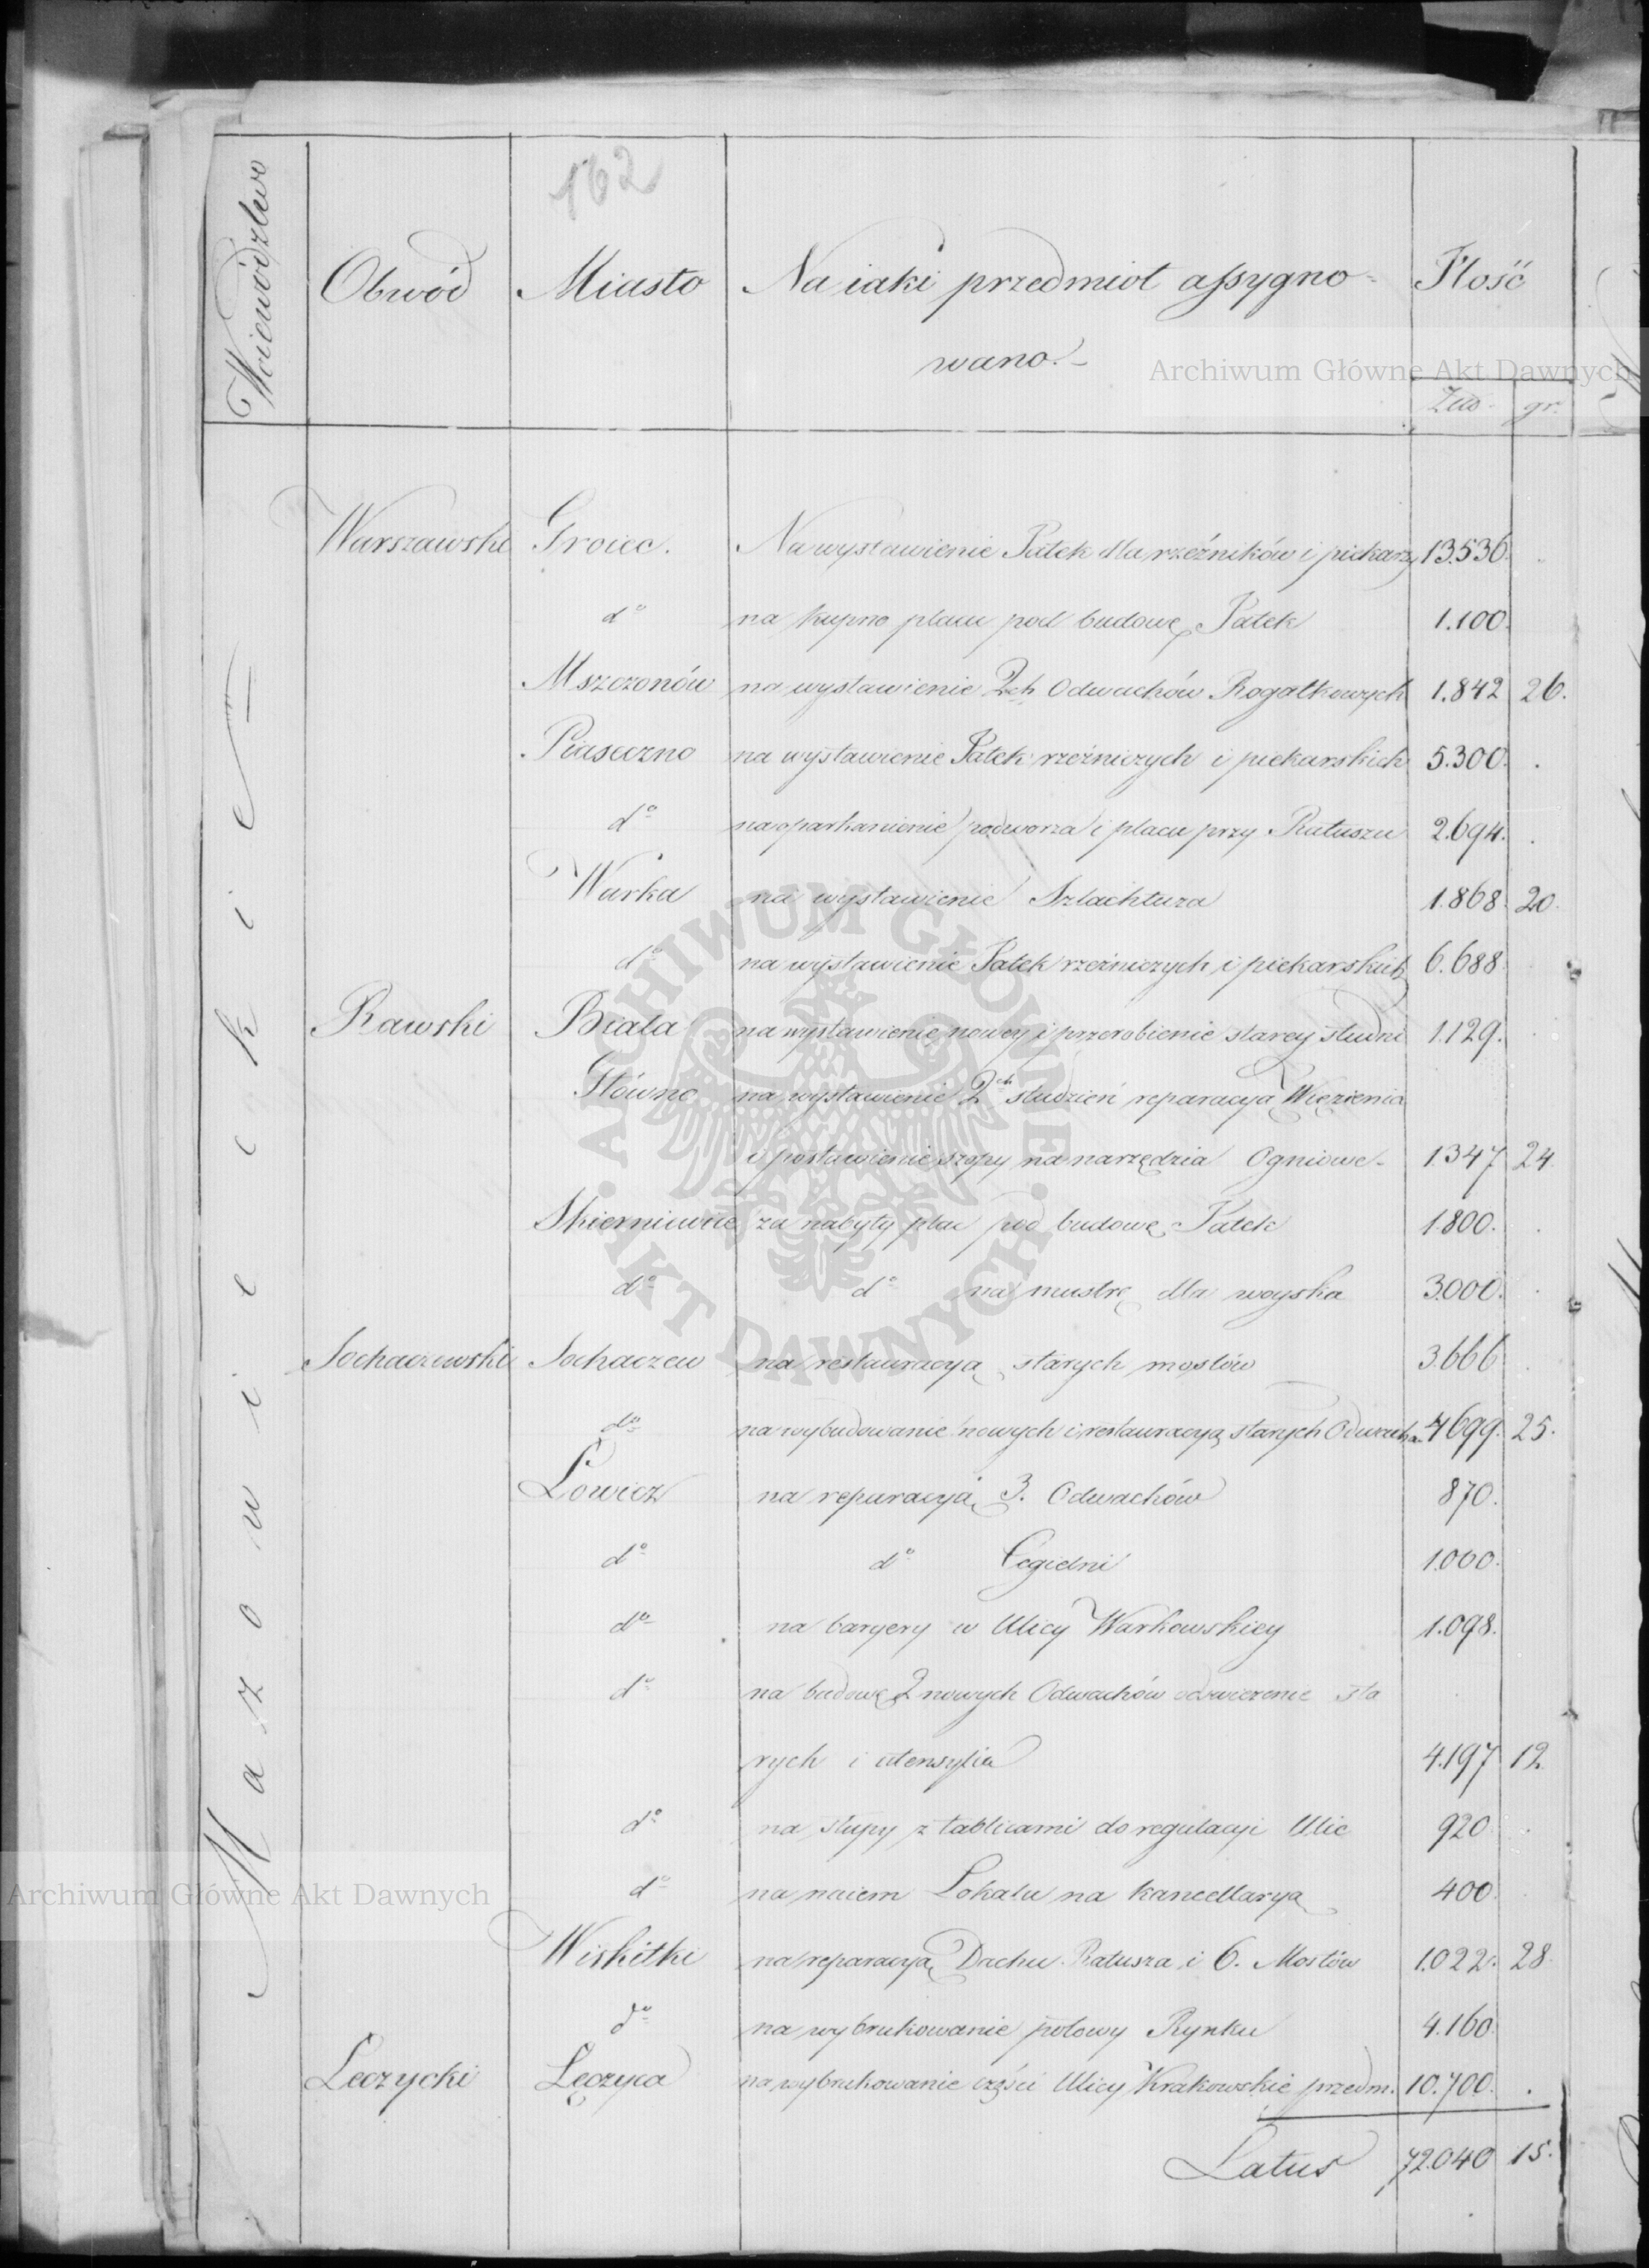 162
Woiewództwo Obwód Miasto Na iaki przedmiot assygno- Ilość
wano.-
Archiwum Główne Akt Dawnych
Złto. gr.
Mazowieckie
Warszawski Groiec. Na wystawienie Jatek dla rzeźników i piekarzy 13.536.
do na kupno placu pod budowę Jatek 1.100.
Mszczonów na wystawienie 2ch Odwachów Rogatkowych 1.842 26.
Piaseczno na wystawienie Jatek rzeźniczych i piekarskich 5.300.
do na oparkanienie podworza i placu przy Ratuszu 2.694.
Warka na wystawienie Szlachtuza 1.868. 20.
do na wystawienie Jatek rzeźniczych i piekarskich 6.688
Rawski Biała na wystawienie nowey i przerobienie starey studni 1.129.
Główno na wystawienie 2ch studzień reparacyą Więzienia
i postawienie szopy na narzędzia Ogniowe- 1.347 24
Skierniewice za nabyty plac pod budowę Jatek 1.800.
do do na mustrę dla woyska 3.000.
Sochaczewski Sochaczew na restauracyą starych mostów 3.666
do na wybudowanie nowych i restauracyą starych Odwach. 4.699. 25.
Łowicz na reparacyą 3. Odwachów 870.
do do Cegielni 1.000.
do na baryery w Ulicy Warkowskiey 1.098.
do na budowę 2 nowych Odwachów odswierzenie sta
rych i utensylia 4.197 12
do na słupy z tablicami do regulacyi Ulic 920
do na naiem Lokalu na kancellaryą 400
Archiwum Główne Akt Dawnych
Wiskitki na reparacyą Dachu Ratusza i 6. Mostów 1.022. 28.
do na wybrukowanie połowy Rynku 4.160.
Łęczycki Łęczyca na wybrukowanie części Ulicy Krakowskie przedm. 10.700.
Latus 72.040 15.
ARCHIWUM GŁÓWNE AKT DAWNYCH